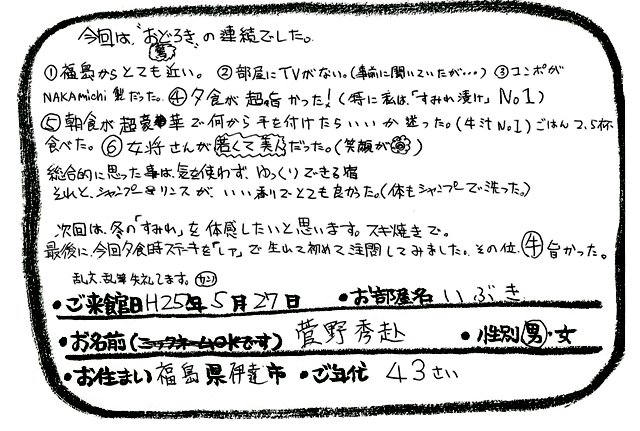 今回は、"おどろき"の連続でした。
驚
①福島からとても近い。 ②部屋にTVがない。(事前に聞いていたが…) ③コンポが
NAKAMichi製だった。④夕食が超旨かった!(特に私は、「すみれ漬け」No1)
⑤朝食が超豪華で何から手を付けたらいいか迷った。(牛汁No1)ごはん2.5杯
食べた。⑥女将さんが若くて美人だった。(笑顔が
総合的に思った事は、気を使わず、ゆっくりできる宿
それと、シャンプー&リンスが、いい香りでとても良かった。(体もシャンプーで洗った。)
次回は、冬の「すみれ」を体感したいと思います。スキ焼きで。
最後に、今回夕食時ステーキを「レア」で生れて初めて注文してみました。その位、牛旨かった。
乱文、乱筆失礼してます。
●ご来館日H25年5月27日 ●お部屋名 いぶき
●お名前(ニックネームOKです) 菅野秀赴 ●性別 男・女
●お住まい 福島県伊達市 ●ご年代 43さい